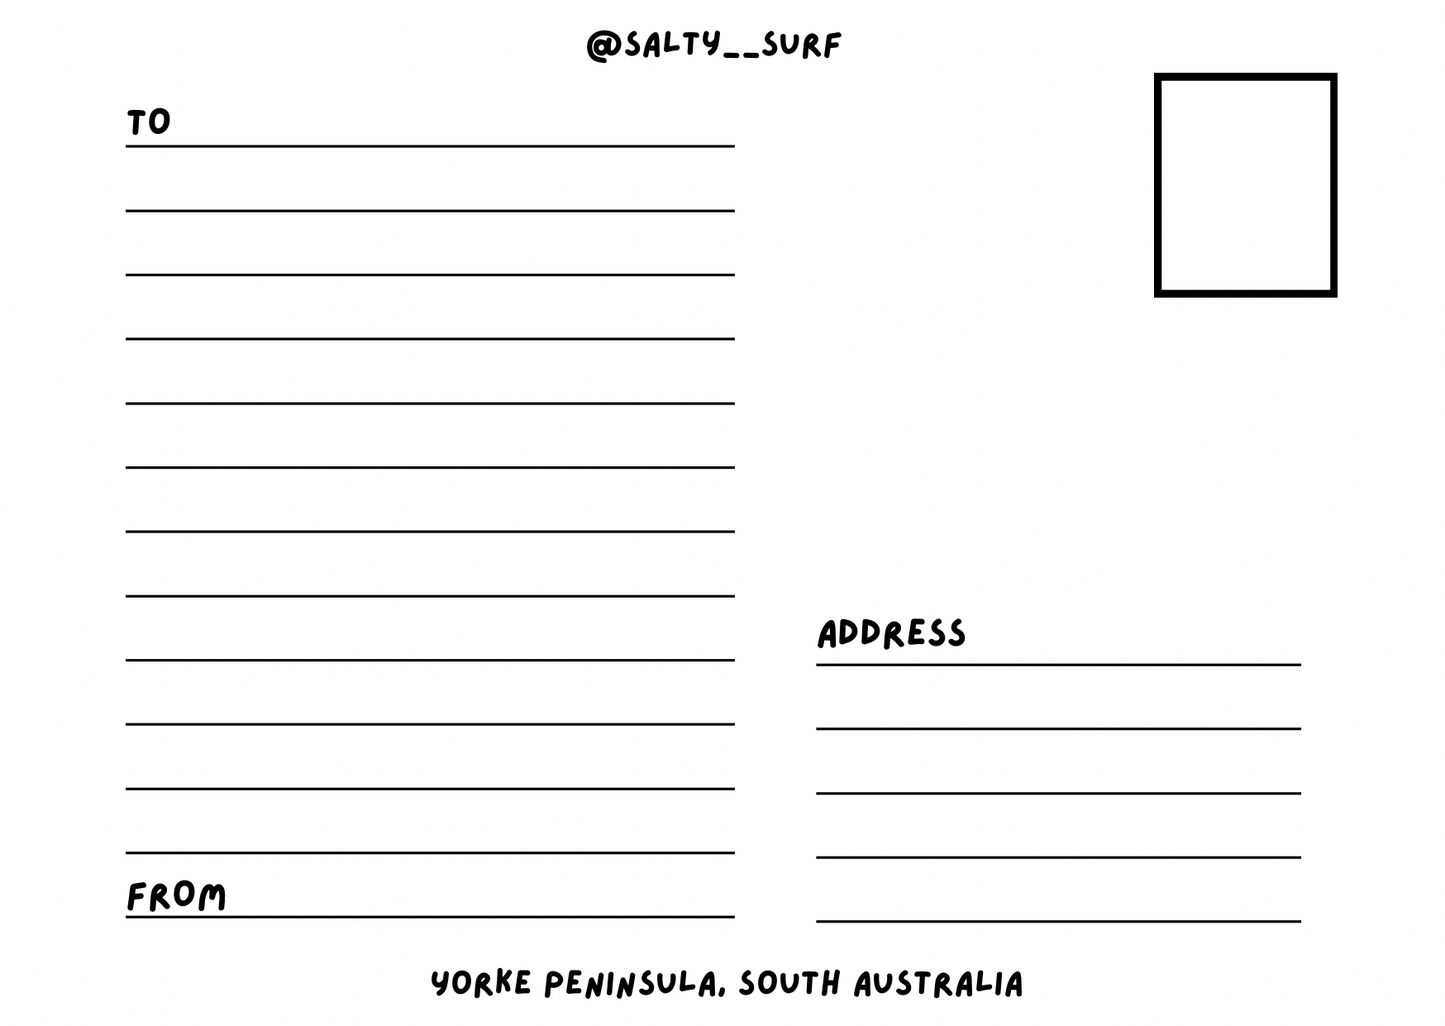 @SALTY__SURF
TO
FROM
ADDRESS
YORKE PENINSULA, SOUTH AUSTRALIA